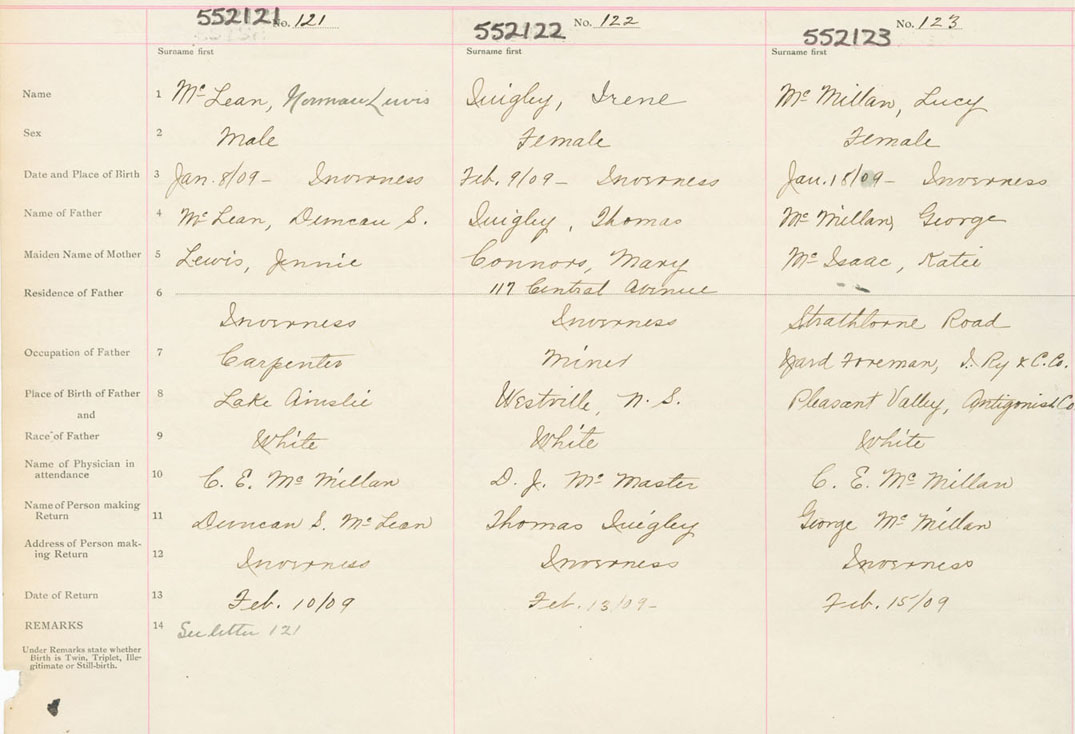 552121 No. 121 552122 No. 122 552123 No. 123
Surname first Surname first Surname first
Name 1 Mc Lean, Norman Lewis Quigley, Irene Mc Millan, Lucy
Sex 2 Male Female Female
Date and Place of Birth 3 Jan. 8/09 - Inverness Feb. 9/09 - Inverness Jan. 18/09 - Inverness
Name of Father 4 Mc Lean, Duncan S. Quigley, Thomas Mc Millan, George
Maiden Name of Mother 5 Lewis, Jennie Connors, Mary Mc Isaac, Katie
Residence of Father 6 117 Central Avenue
Inverness Inverness Strathlorne Road
Occupation of Father 7 Carpenter Miner Yard Foreman, I. Ry & C. Co.
Place of Birth of Father 8 Lake Ainslie Westville, N. S. Pleasant Valley, Antigonish Co
and
Race of Father 9 White White White
Name of Physician in
attendance 10 C. E. Mc Millan D. J. Mc Master C. E. Mc Millan
Name of Person making
Return 11 Duncan S. Mc Lean Thomas Quigley George Mc Millan
Address of Person mak-
ing Return 12 Inverness Inverness Inverness
Date of Return 13 Feb. 10/09 Feb. 13/09- Feb. 15/09
REMARKS 14 See letter 121
Under Remarks state whether
Birth is Twin, Triplet, Ille-
gitimate or Still-birth.